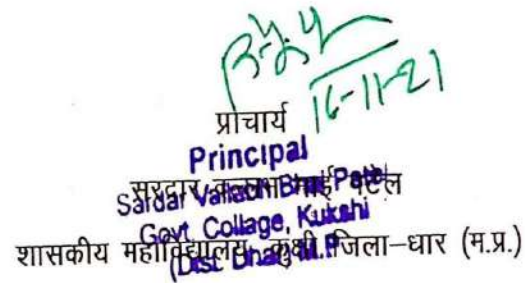 16-11-21
प्राचार्य
Principal
सरदार वल्लभ भाई पटेल
Sardar Vallabh Bhai Patel
Govt. Collage, Kukshi
शासकीय महाविद्यालय कुक्षी जिला-धार (म.प्र.)
(Dist. Dhar) M.P.